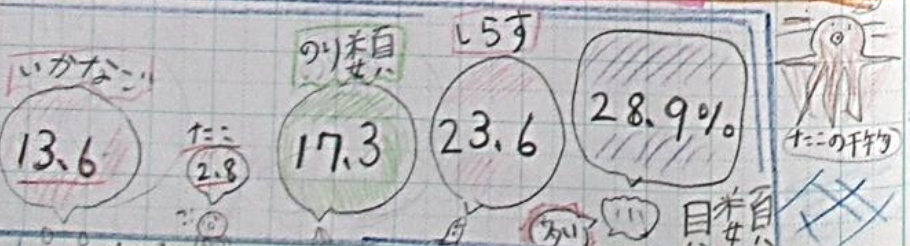 いかなご
13.6
たこ
2.8
のり類
17.3
しらす
23.6
28.9%
たこの干物